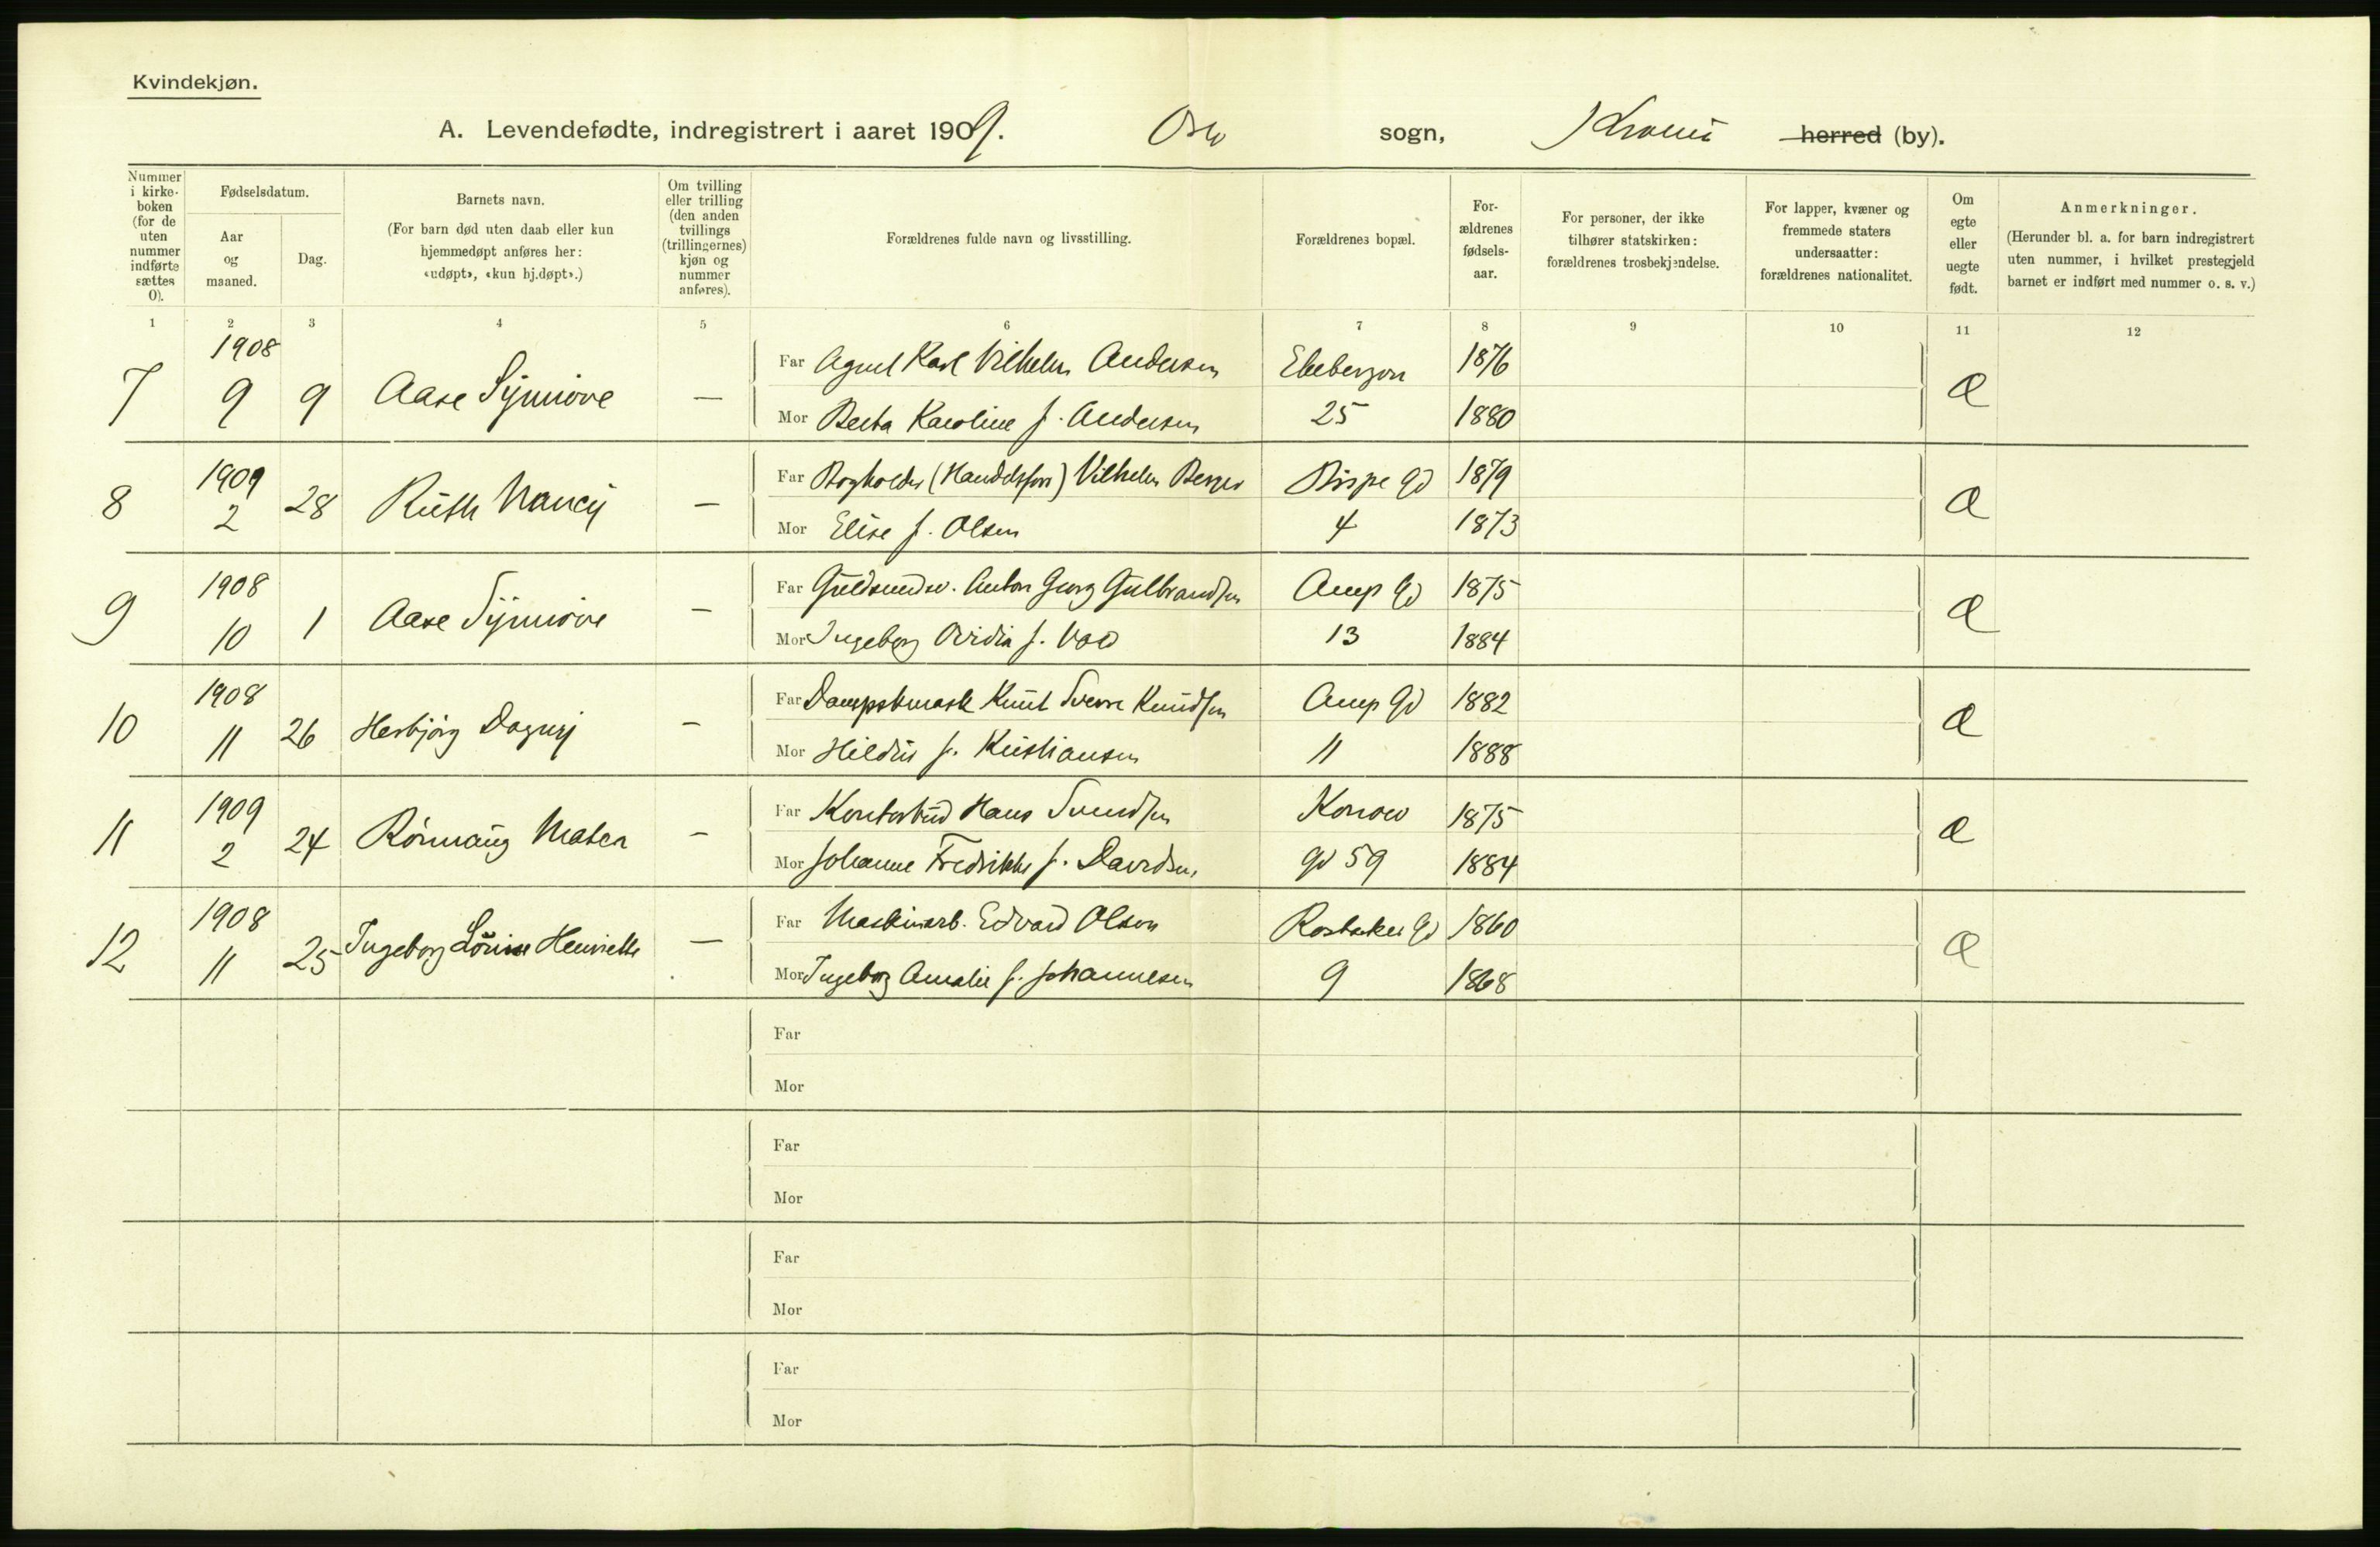 Kvindekjøn.
A. Levendefødte, indregistrert i aaret 1909. Oslo sogn, herred (by).
Nummer i kirkeboken (for de uten nummer indførte sættes 0).
Fødselsdatum.
Aar og maaned.
Dag.
Barnets navn.
(For barn død uten daab eller kun hjemmedøpt anføres her: «udøpt», «kun hj.døpt».)
Om tvilling eller trilling (den anden tvillings (trillingernes) kjøn og nummer anføres).
Forældrenes fulde navn og livsstilling.
Forældrenes bopæl.
For-ældrenes fødsels-aar.
For personer, der ikke tilhører statskirken: forældrenes trosbekjendelse.
For lapper, kvæner og fremmede staters undersaatter: forældrenes nationalitet.
Om egte eller uegte født.
Anmerkninger.
(Herunder bl. a. for barn indregistrert uten nummer, i hvilket prestegjeld barnet er indført med nummer o. s. v.)
1 2 3 4 5 6 7 8 9 10 11 12
1908
7 9 9 Aase Synnöve — Far Agent Karl Vilhelm Andersen Ekebergvn 1876 Æ
Mor Berta Karoline f. Andersen 25 1880
1909
8 2 28 Ruth Nancy — Far Bogholder (Handelsforr) Vilhelm Berger Bispe Gd 1879 Æ
Mor Elise f. Olsen 4 1873
1908
9 10 1 Aase Synnöve — Far Guldsmedsv. Anton Georg Gulbrandsen Amp Gd 1875 Æ
Mor Ingeborg Ovidia f. 13 1884
1908
10 11 26 Herbjörg Dagny — Far Knut Sverre Knudsen Amp Gd 1882 Æ
Mor f. Kristiansen 11 1888
1909
11 2 24 Rönnaug — Far Kontorbud Hans Svendsen Konow 1875 Æ
Mor Johanne Fredrikke f. Davidsen gd 59 1884
1908
12 11 25 Ingeborg Louise Henriette — Far Maskinarb. Edvard Olsen Gd 1860 Æ
Mor Ingeborg Amalie f. Johannesen 9 1868
Far
Mor
Far
Mor
Far
Mor
Far
Mor